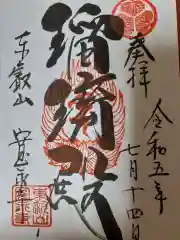 奉拝
令和五年
七月十四日
瑠璃殿
東叡山
寛永寺